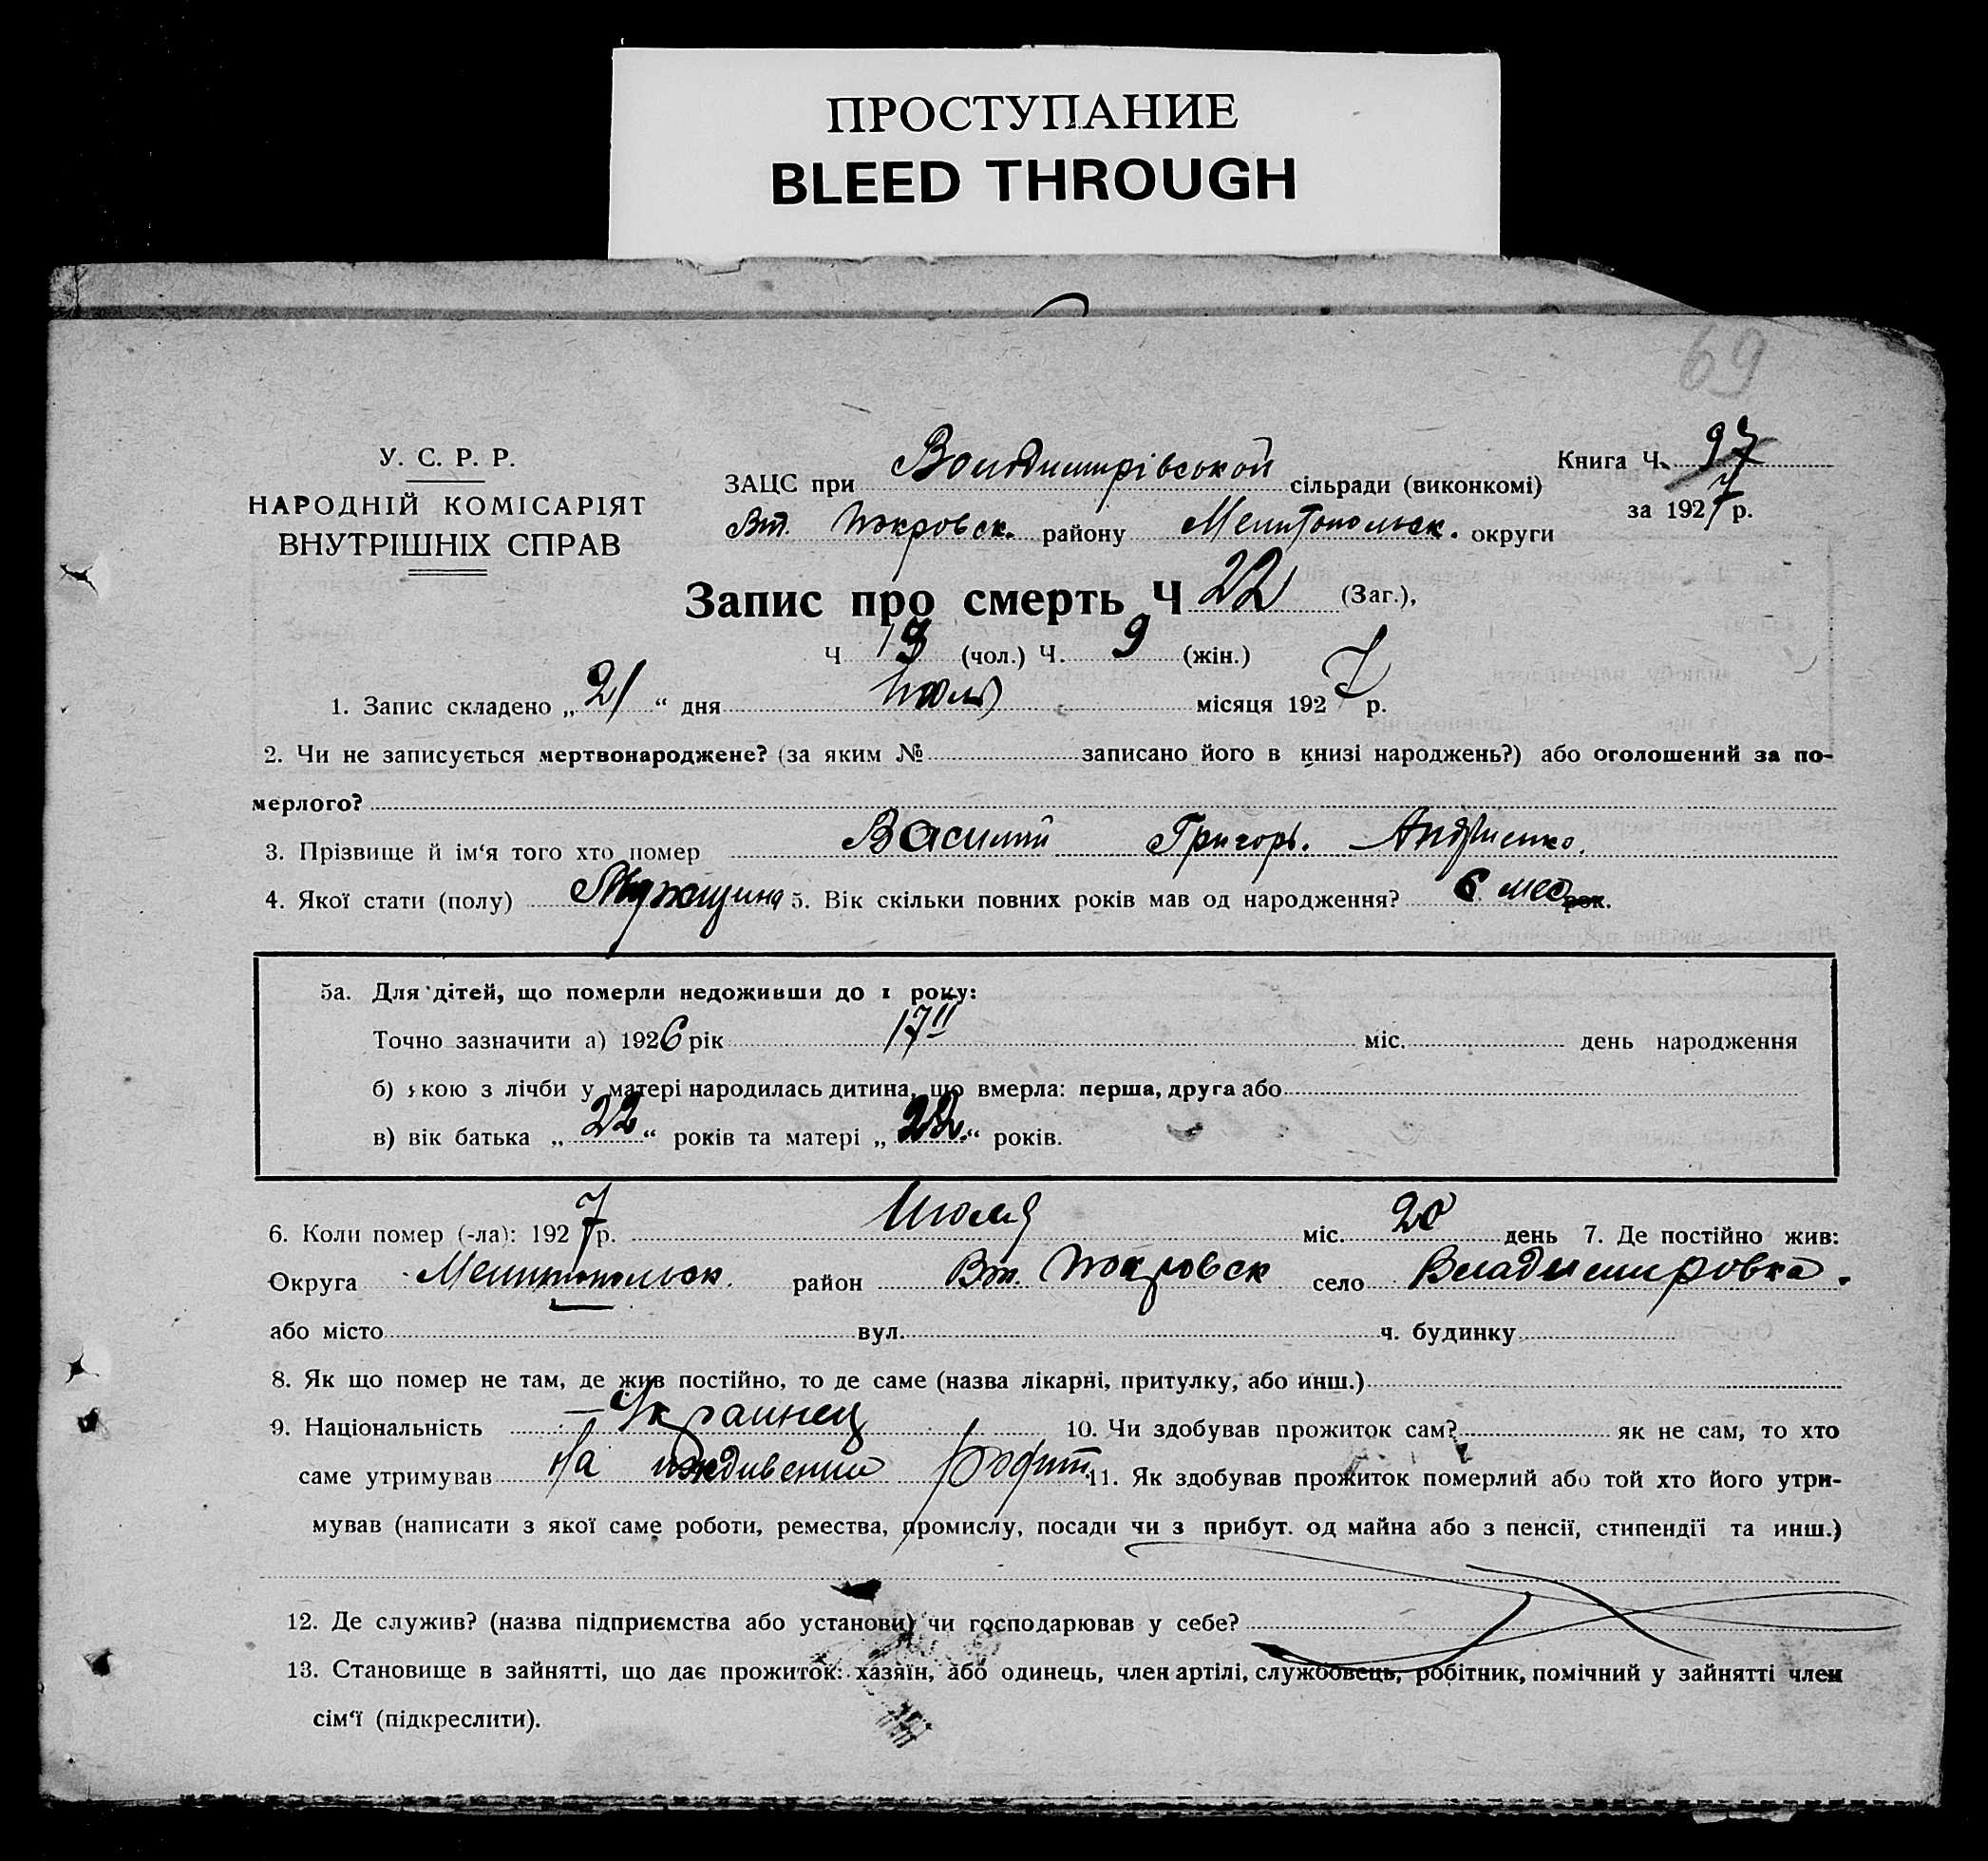 ПРОСТУПАНИЕ
BLEED THROUGH
69
У. С. Р. Р.
НАРОДНІЙ КОМІСАРІЯТ
ВНУТРІШНІХ СПРАВ
ЗАЦС при Володимирівській сільради (виконкомі)
Вт. Покровск. району Мелитопольск. округи
Книга Ч. 97
за 1927 р.
Запис про смерть Ч 22 (Заг.),
Ч 13 (чол.) Ч. 9 (жін.)
1. Запис складено „ 21 “ дня Июля місяця 1927 р.
2. Чи не записується мертвонароджене? (за яким № записано його в книзі народжень?) або оголошений за по-
мерлого?
3. Прізвище й ім‘я того хто помер Василий Григорь. Андриенко.
4. Якої стати (полу) Мужщина 5. Вік скільки повних років мав од народження? 6 мес рок.
5а. Для дітей, що померли недоживши до 1 року:
Точно зазначити а) 1926 рік 17 II міс. день народження
б) якою з лічби у матері народилась дитина, що вмерла: перша, друга або
в) вік батька „ 22 “ років та матері „ 22 “ років.
6. Коли помер (-ла): 1927 р. Июля міс. 20 день 7. Де постійно жив:
Округа Мелитопольск. район Вт. Покровск село Владимировка.
або місто вул. ч. будинку
8. Як що помер не там, де жив постійно, то де саме (назва лікарні, притулку, або инш.)
9. Національність — Украинец 10. Чи здобував прожиток сам? як не сам, то хто
саме утримував На иждивении родит. 11. Як здобував прожиток померлий або той хто його утри-
мував (написати з якої саме роботи, ремества, промислу, посади чи з прибут. од майна або з пенсії, стипендії та инш.)
12. Де служив? (назва підприємства або установи) чи господарював у себе?
13. Становище в зайнятті, що дає прожиток: хазяїн, або одинець, член артілі, службовець, робітник, помічний у зайнятті член
сім‘ї (підкреслити).